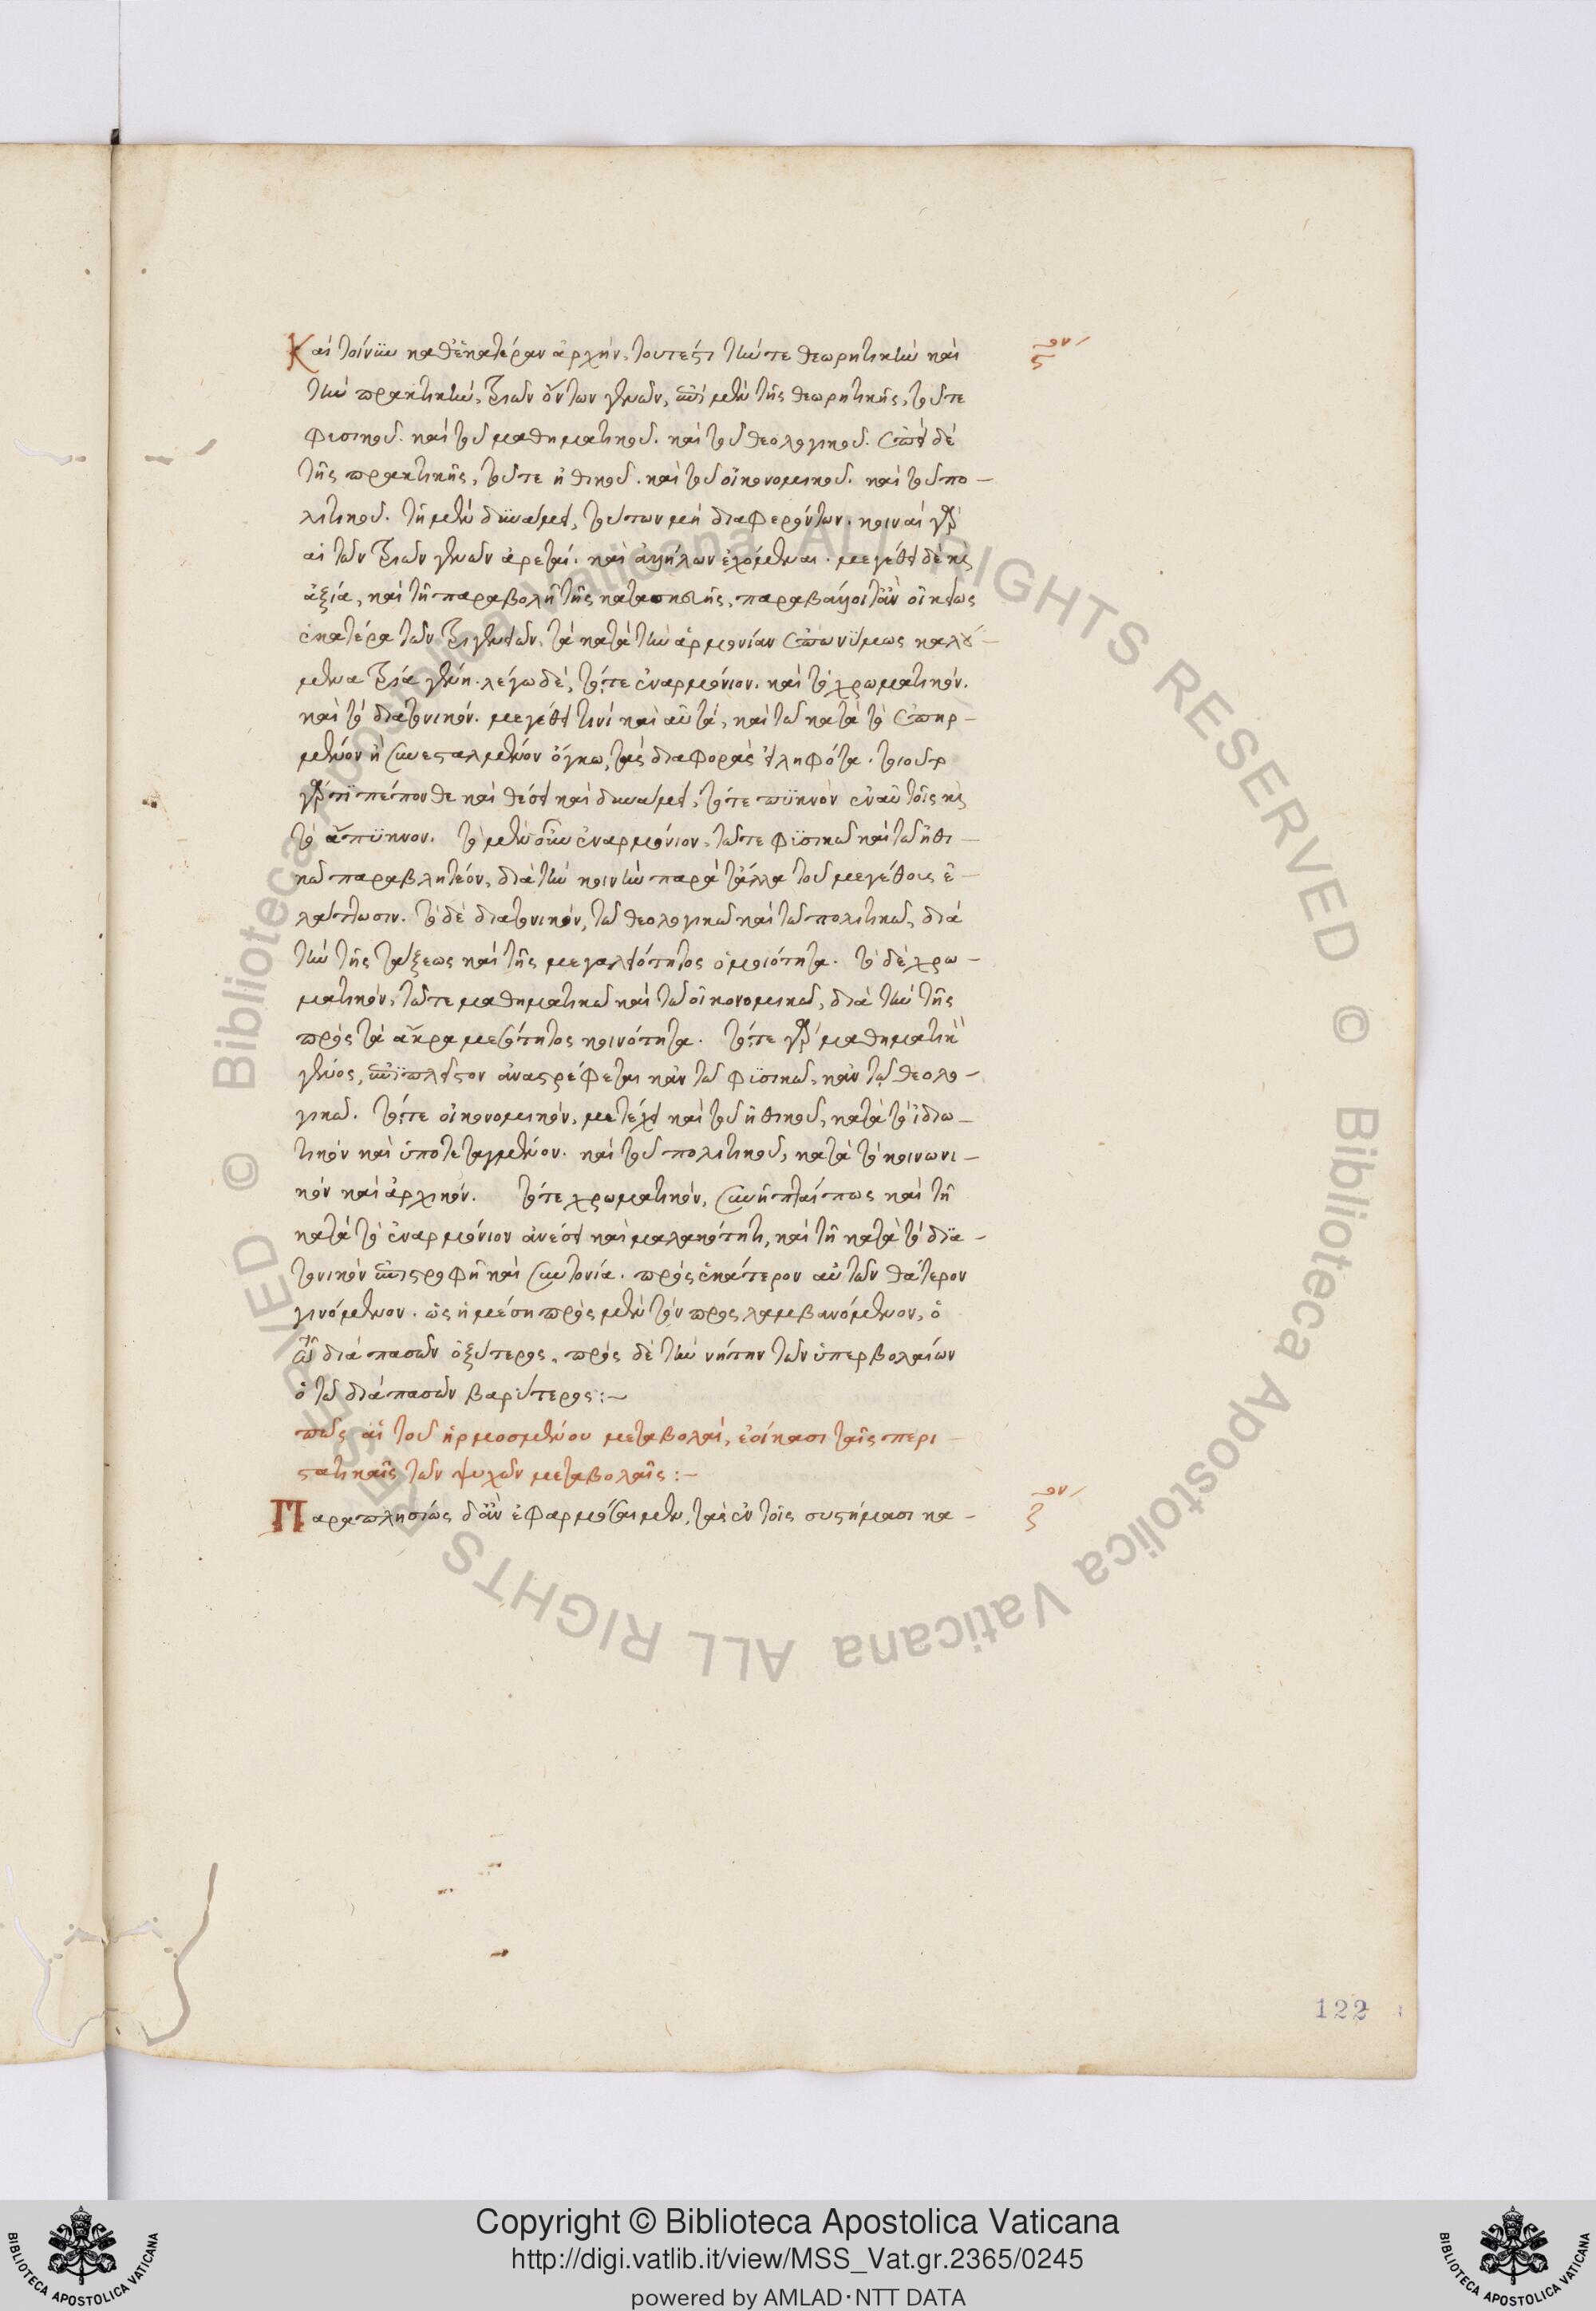 Καὶ τοίνυν καθ' ἑκατέραν ἀρχὴν, τουτέστι τήν τε θεωρητικὴν καὶ
τὴν πρακτικὴν, τριῶν ὄντων γενῶν, ἐπὶ μὲν τῆς θεωρητικῆς, τοῦ τε
φυσικοῦ. καὶ τοῦ μαθηματικοῦ. καὶ τοῦ θεολογικοῦ. ἐπὶ δὲ
τῆς πρακτικῆς, τοῦ τε ἠθικοῦ. καὶ τοῦ οἰκονομικοῦ. καὶ τοῦ πο-
λιτικοῦ. τῇ μὲν δυνάμει, τούτων μὴ διαφερόντων. κοιναὶ γὰρ
αἱ τῶν τριῶν γενῶν ἀρεταί. καὶ ἀλλήλων ἐχόμεναι. μεγέθει δὲ καὶ
ἀξίᾳ, καὶ τῇ παραβολῇ τῆς κατασκευῆς, παραβάλλοιτ' ἂν οἰκείως
ἑκατέρᾳ τῶν τριγενειῶν, τὰ κατὰ τὴν ἁρμονίαν ἐπωνύμως καλού-
μενα τρία γένη. λέγω δὲ, τό, τε ἐναρμόνιον. καὶ τὸ χρωματικόν.
καὶ τὸ διατονικόν. μεγέθει τινὶ καὶ αὐτὰ, καὶ τῷ κατὰ τὸ ἐπηρ-
μένον ἢ συνεσταλμένον ὄγκῳ, τὰς διαφορὰς εἰληφότα. τοιοῦτο
γάρ τι πέπονθε καὶ θέσει καὶ δυνάμει, τό τε πυκνὸν ἐν αὐτοῖς καὶ
τὸ ἄπυκνον. τὸ μὲν οὖν ἐναρμόνιον, τῷ τε φυσικῷ καὶ τῷ ἠθι-
κῷ παραβλητέον, διὰ τὴν κοινὴν παρὰ τἄλλα τοῦ μεγέθους ἐ-
λάττωσιν. τὸ δὲ διατονικόν, τῷ θεολογικῷ καὶ τῷ πολιτικῷ, διὰ
τὴν τῆς τάξεως καὶ τῆς μεγαλειότητος ὁμοιότητα. τὸ δὲ χρω-
ματικόν, τῷ τε μαθηματικῷ καὶ τῷ οἰκονομικῷ, διὰ τὴν τῆς
πρὸς τὰ ἄκρα μεσότητος κοινότητα. τό, τε γὰρ μαθηματικὸν
γένος, ἐπὶ πλεῖστον ἀναστρέφεται κἂν τῷ φυσικῷ, κἂν τῷ θεολο-
γικῷ. τό, τε οἰκονομικόν, μετέχει καὶ τοῦ ἠθικοῦ, κατὰ τὸ ἰδιω-
τικὸν καὶ ὑποτεταγμένον. καὶ τοῦ πολιτικοῦ, κατὰ τὸ κοινωνι-
κὸν καὶ ἀρχικόν. τό τε χρωματικόν, συνῆπταί πως καὶ τῇ
κατὰ τὸ ἐναρμόνιον ἀνέσει καὶ μαλακότητι, καὶ τῇ κατὰ τὸ δια-
τονικὸν ἐπιστροφῇ καὶ συντονίᾳ. πρὸς ἑκάτερον αὐτῶν θάτερον
γινόμενον. ὡς ἡ μέση πρὸς μὲν τὸν προσλαμβανόμενον, ὁ
τῷ διὰ πασῶν ὀξύτερος, πρὸς δὲ τὴν νήτην τῶν ὑπερβολαίων
ὁ τῷ διὰ πασῶν βαρύτερος:-
πῶς αἱ τοῦ ἡρμοσμένου μεταβολαὶ, ἐοίκασι ταῖς περι-
στατικαῖς τῶν ψυχῶν μεταβολαῖς:-
Παραπλησίως δ' ἂν ἐφαρμόσαιμεν, τὰς ἐν τοῖς συστήμασι κα-
ϛον
ζον
122
© Biblioteca Apostolica Vaticana ALL RIGHTS RESERVED © Biblioteca Apostolica Vaticana ALL RIGHTS RESERVED
Copyright © Biblioteca Apostolica Vaticana
http://digi.vatlib.it/view/MSS_Vat.gr.2365/0245
powered by AMLAD·NTT DATA
BIBLIOTECA APOSTOLICA VATICANA
BIBLIOTECA APOSTOLICA VATICANA